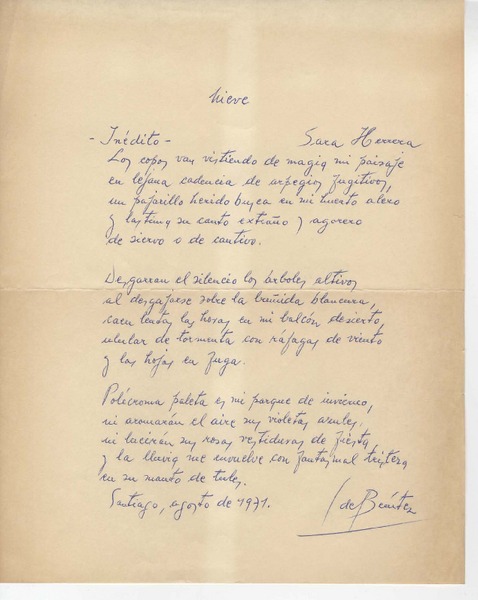 Nieve
- Inédito - Sara Herrera
Los copos van vistiendo de magia mi paisaje
en lejana cadencia de arpegios fugitivos,
un pajarillo herido busca en mi huerto alero
y lastima su canto extraño y agorero
de siervo o de cautivo.
Desgarran el silencio los árboles altivos
al desgajarse sobre la bruñida blancura,
caen lentas las horas en mi balcón desierto,
ulular de tormenta con ráfagas de viento
y las hojas en fuga.
Polícroma paleta es mi parque de invierno,
ni aromarán el aire sus violetas azules,
ni lucirán sus rosas vestiduras de fiesta
y la lluvia me envuelve con fantasmal tristeza
en su manto de tules.
Santiago, agosto de 1971. de Benítez